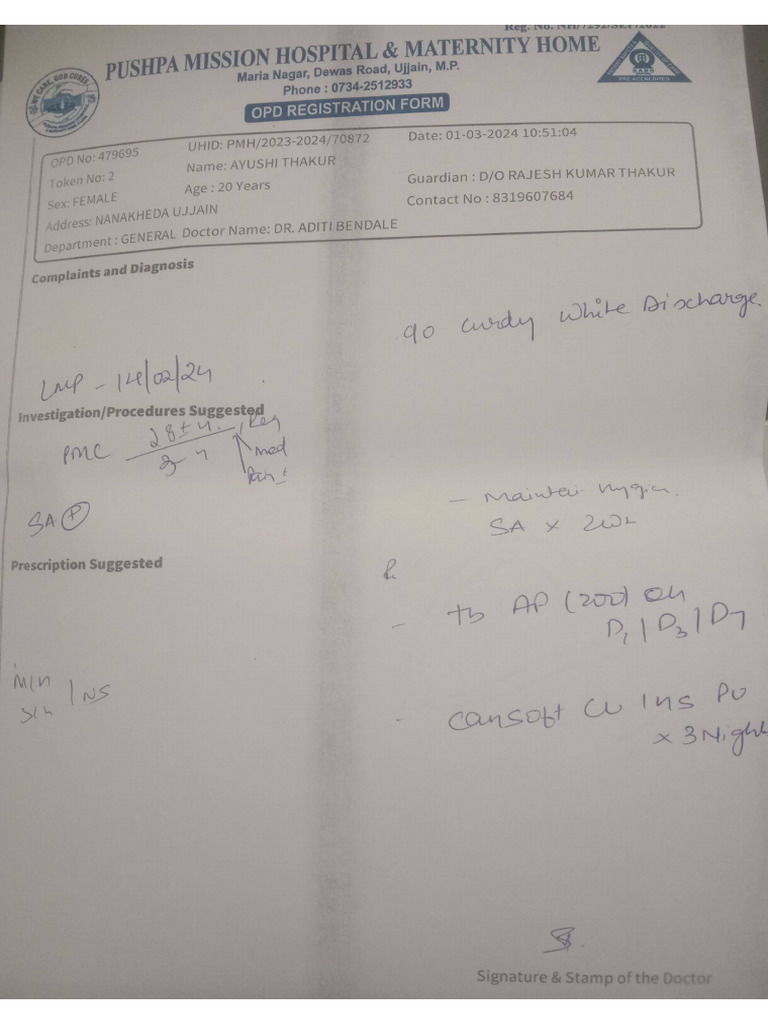 PUSHPA MISSION HOSPITAL & MATERNITY HOME
Maria Nagar, Dewas Road, Ujjain, M.P.
Phone : 0734-2512933
OPD REGISTRATION FORM
WE CARE, GOD CURES
OPD No: 479695 UHID: PMH/2023-2024/70872 Date: 01-03-2024 10:51:04
Token No: 2 Name: AYUSHI THAKUR
Sex: FEMALE Age : 20 Years Guardian : D/O RAJESH KUMAR THAKUR
Address: NANAKHEDA UJJAIN Contact No : 8319607684
Department : GENERAL Doctor Name: DR. ADITI BENDALE
Complaints and Diagnosis
curdy White Discharge.
LMP - 14/02/24
Investigation/Procedures Suggested
PMC 28 ±
med
SA +
- Maintain hygiene.
SA x
Prescription Suggested
- tb AP (200)
D1 / D3 / D7
M/H
S/H / NS
- Cansoft CL Ins PV
x 3 Night
Signature & Stamp of the Doctor